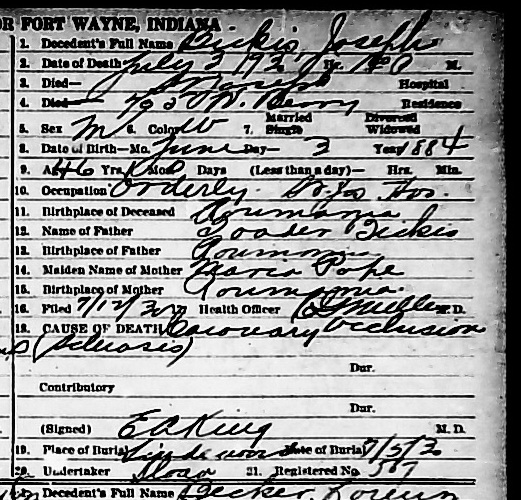 OR FORT WAYNE, INDIANA
1. Decedent's Full Name Dickis Joseph
2. Date of Death July 3 193 Hr. M.
3. Died— St Joseph Hospital
4. Died— W. Berry Residence
5. Sex M 6. Color W 7. Married Single Divorced Widowed
8. Date of Birth—Mo. June Day— 3 Year 1884
9. Age 46 Yrs. 1 Mos. 0 Days (Less than a day)— Hrs. Min.
10. Occupation Orderly. St. Jos. Hos.
11. Birthplace of Deceased Roumania.
12. Name of Father Toader Dickis
13. Birthplace of Father Roumania
14. Maiden Name of Mother Maria Pope
15. Birthplace of Mother Roumania.
16. Filed 7/12/30 Health Officer M.D.
18. CAUSE OF DEATH Coronary Occlusion
(Sclerosis)
Dur.
Contributory
Dur.
(Signed) E A King M. D.
19. Place of Burial Lindenwood Date of Burial 7/5/30
20. Undertaker Sloan 21. Registered No. 517
Decedent's Full Name Decker,